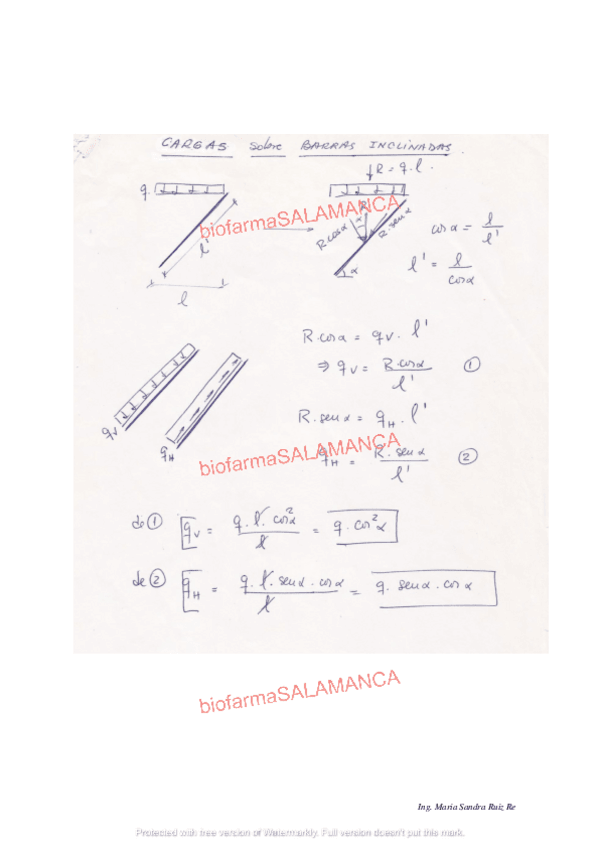 CARGAS sobre BARRAS INCLINADAS.
R = q.l.
q
biofarmaSALAMANCA
R
α
R cosα
R.senα
l'
α
l
cosα = l / l'
l' = l / cosα
R.cosα = qv. l'
⇒ qv = R.cosα / l' ①
qv
qH
R.senα = qH. l'
biofarmaSALAMANCA
qH = R.senα / l' ②
de ① qv = q.l.cos²α / l = q.cos²α
de ② qH = q.l.senα.cosα / l = q.senα.cosα
biofarmaSALAMANCA
Ing. Maria Sandra Ruiz Re
Protected with free version of Watermarkly. Full version doesn't put this mark.